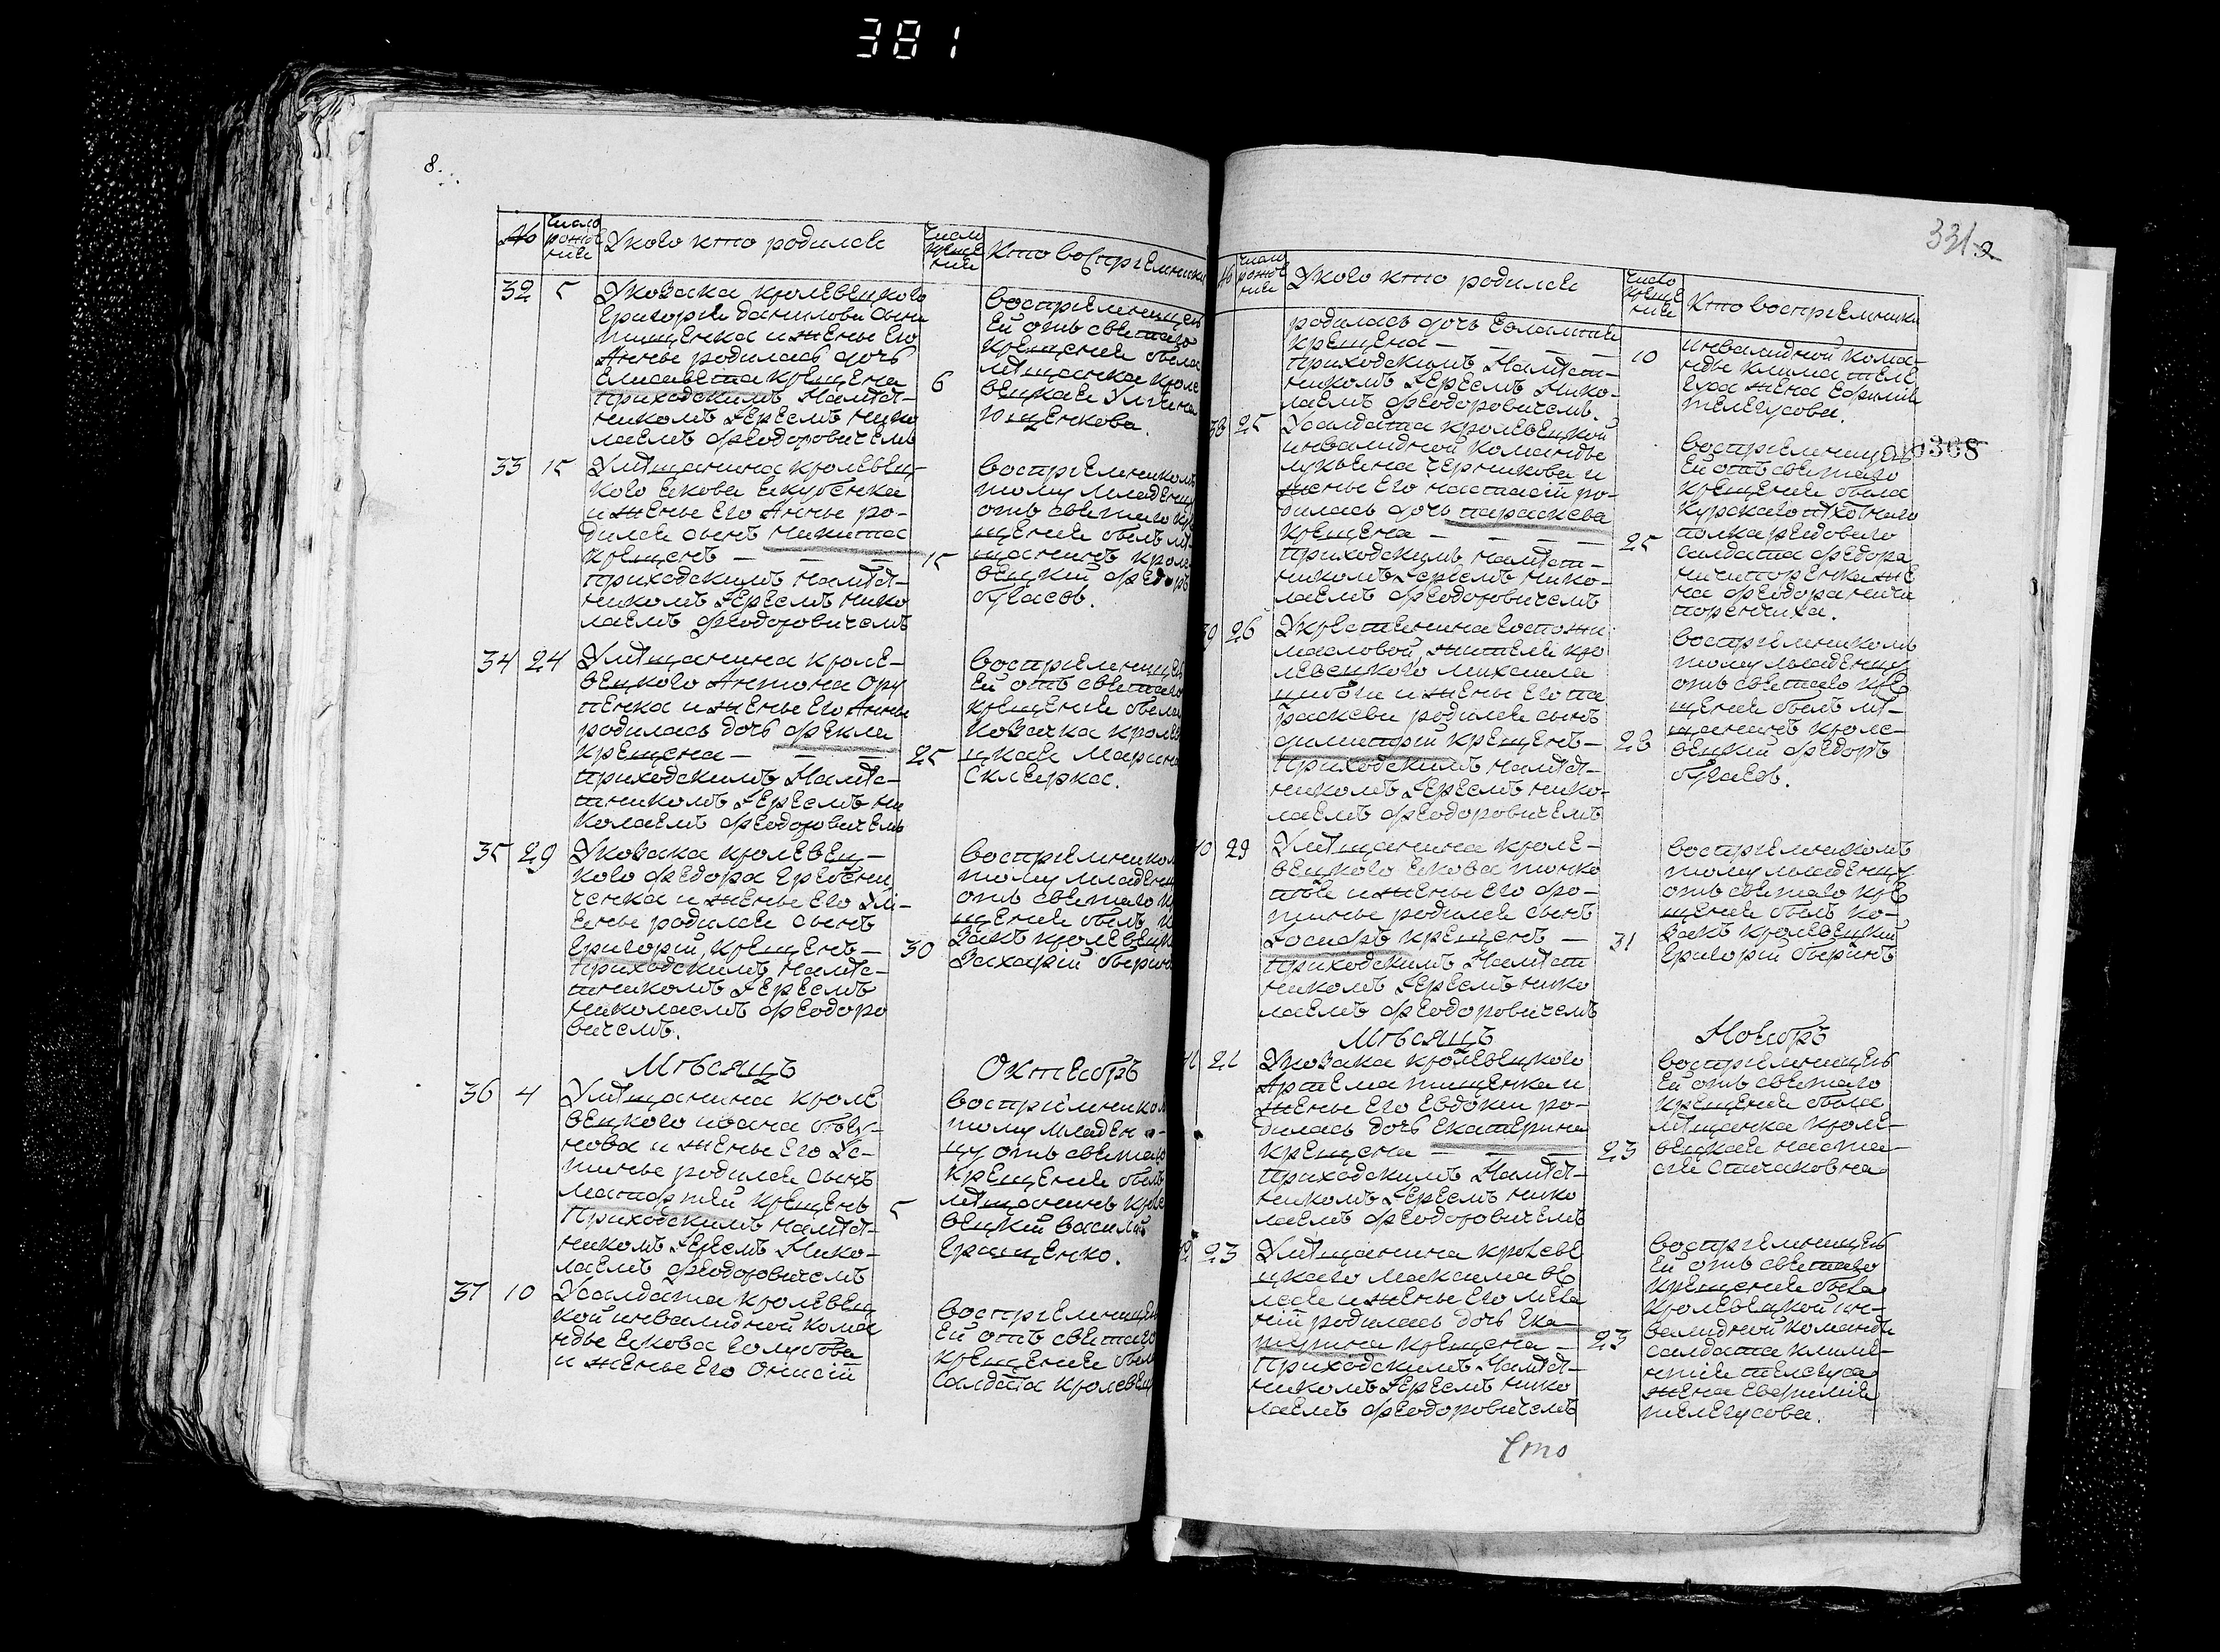 381
8
№ число рожде ние Укого кто родился число креще ние Кто воспріемники
32 5 Уковака кролевецкого
Григорія данилова сына
тищенка и женѣ Его
Аннѣ родилась дочь
Елисавета крещена
6
приходскимъ Намѣст-
никомъ Іереемъ нико
лаемъ феодоровичемъ
воспріемницею
Ей отъ святаго
крещенія была
мѣщанка кроле
вецкая Улияна
Ющенкова.
33 15 Умѣщанина кролевец-
кого Якова Якубенка
и женѣ Его Аннѣ ро-
дился сынъ никита
крещенъ — — —
15
приходскимъ намѣст-
никомъ Іереемъ нико
лаемъ феодоровичемъ
воспріемникомъ
тому младенцу
отъ святаго кре
щенія былъ мѣ-
щанинъ кроле
вецкий федоръ
бугаевъ.
34 24 Умѣщанина кроле-
вецкого Антона Ору
пенка и женѣ Его Аннѣ
родилась дочь фекла
крещена — — —
25
приходскимъ Намѣс-
тникомъ Іереемъ ни
колаемъ феодоровичемъ
воспріемницею
Ей отъ святаго
крещенія была
ковачка кролев
цкая Марина
Скляерка.
35 29 Уковака кролевец-
кого федора гребени
ченка и женѣ Его Ули-
янѣ родился сынъ
Григорий, крещенъ —
30
приходскимъ намѣс-
тникомъ Іереемъ
николаемъ феодоро
вичемъ.
воспріемником
тому младенцу
отъ святаго к
щенія былъ к
вакъ кролевецк
Захарій
Мѣсяцъ Октябръ
36 4 Умѣщанина кроле
вецкого ивана
нова и женѣ Его Ус-
тинѣ родился сынъ
Матфей крещенъ
5
приходскимъ намѣст-
никомъ Іереемъ Нико-
лаемъ феодоровичемъ
воспріемником
тому младен-
цу отъ святаго
крещенія былъ
мѣщанинъ кроле
вецкий василий
Грищенко.
37 10 Усалдата кролевец
кой инвалидной кома
ндѣ Якова Голубова
и женѣ Его Онисій
воспріемницею
Ей отъ святаго
крещенія была
Салдата кролевец
331
№ число рожде ние Укого кто родился число креще ние Кто воспріемники
родилась дочь Евлампия
крещена — — —
10
приходскимъ Намѣст-
никомъ Іереемъ Нико-
лаемъ феодоровичемъ.
инвалидной кома-
ндѣ клима теле
гуса жена Ефимия
телегусова.
368
38 25 Усалдата кролевецкой
инвалидной командѣ
лукьяна черникова и
женѣ Его настасій ро-
дилась дочь параскева
крещена — — —
25
приходскимъ намѣст-
никомъ Іереемъ нико-
лаемъ феодоровичемъ
воспріемницею
Ей отъ святаго
крещенія была
курскаго пѣхотнаго
полка рядового
салдата федора
ничипоренка же
на федора ничи
поренчиха.
39 26 Укрестянина госпожи
масловой, жителя кро
левецкого михаила
цибы и женѣ Его па
раскеви родился сынъ
димитрий крещенъ —
28
приходскимъ намѣст-
никомъ Іереемъ нико-
лаемъ феодоровичемъ
воспріемникомъ
тому младенцу
отъ святаго кре
щенія былъ мѣ-
щанинъ кроле-
вецкий федоръ
бугаевъ.
40 29 Умѣщанина кроле-
вецкого Якова
и женѣ Его фо-
тинѣ родился сынъ
Іосифъ крещенъ —
31
приходскимъ Намѣст
никомъ Іереемъ нико
лаемъ феодоровичемъ
воспріемникомъ
тому младенцу
отъ святаго кре
щенія былъ ко-
вакъ кролевецкий
Григорій
Мѣсяцъ Ноябръ
41 21 Уковака кролевецкого
Артема тищенка и
женѣ Его Евдокии ро-
дилась дочь Екатерина
крещена — — —
23
приходскимъ Намѣст-
никомъ Іереемъ нико
лаемъ феодоровичемъ
воспріемницею
Ей отъ святаго
крещенія была
мѣщанка кроле-
вецкая наста-
сия
42 23 Умѣщанина кролеве
цкаго Максима
и женѣ Его мела
ній родилась дочь Ека-
терина крещена —
23
приходскимъ Намѣст-
никомъ Іереемъ нико
лаемъ феодоровичемъ
воспріемницею
Ей отъ святаго
крещенія была
кролевецкой ин-
валидной командѣ
салдата
телегуса
жена
телегусова.
Сто